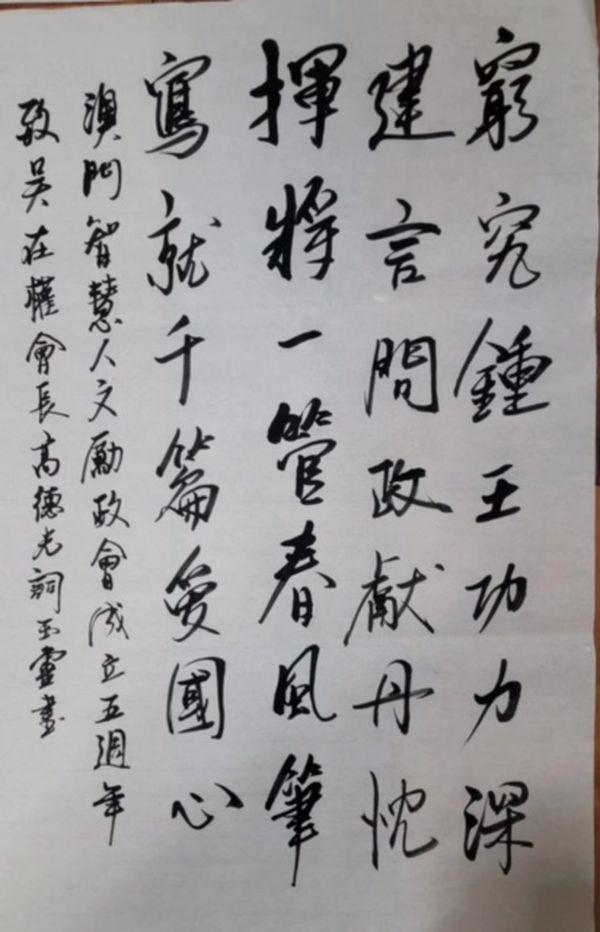 窮究鍾王功力深
建言問政獻丹忱
揮將一管春風筆
寫就千篇愛國心
澳門智慧人文勵政會成立五週年
致吴在權會長高德光詞玉靈書